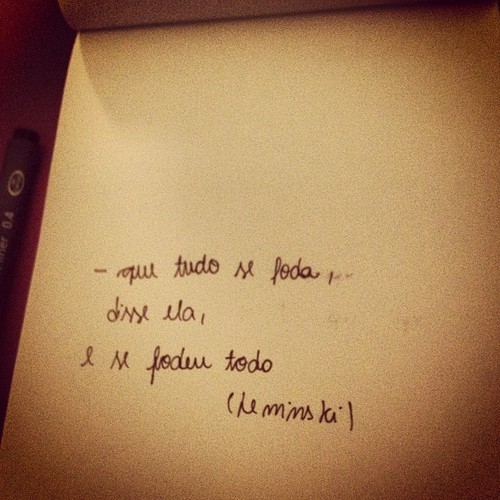 - que tudo se foda,
disse ela,
e se fodeu todo
(Leminski)
0.4